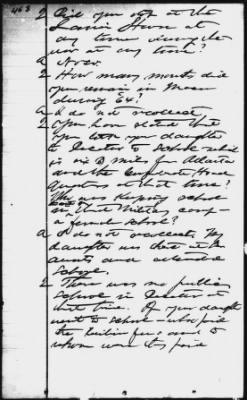 463
Q Did you stop at the
House at
any time during the
war at any time?
A Never.
Q How many months did
you remain in Macon
during 64?
A I do not recollect.
Q You have stated that
you took your daughter
to Decatur to school which
is six miles from Atlanta
and the Confederate Head
Quarters at that time?
Who was keeping school
in
a female school?
A I do not recollect. My
daughter was there at her
aunts and attended
school.
Q There was no public
school in Decatur at
that time. If your daughter
went to school who paid
the tuition fees and to
whom was it paid